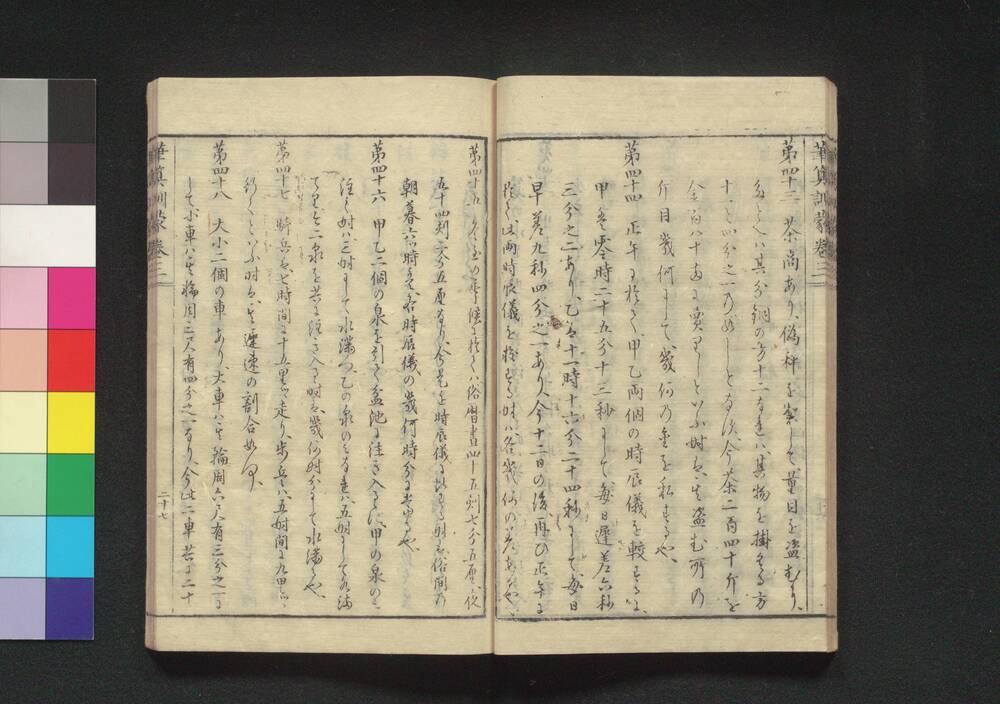 筆算訓蒙 巻三
第四十三 茶商あり、偽秤を製して量目を盗むあり、
其分銅の方十二なれハ其物を掛くる方
十一と四分之一の如しとなす今茶二百四十斤を
金百八十両に買りしといふ時ハ其盗む所の
斤目幾何にして、幾何の金を私するや、
第四十四 正午に於て、甲乙両個の時辰儀を較するに、
甲ハ零時二十五分十三秒にして毎日遅差六秒
三分之二あり、乙ハ十一時十六分二十四秒にして毎日
早差九秒四分之一あり、今十二日の後再ひ正午に
於て此両時辰儀を較する時ハ各幾何の差あるや、
第四十五 冬至の昼ハ俗暦書四十五刻七分五厘夜
五十四刻二分五厘なり、今是を時辰儀に
朝暮六ツ時ハ各時辰儀の幾何時分に当るや、
第四十六 甲乙二個の泉を引て盆池に注き入るに甲の泉のミ
注く時ハ三時にして水満つ乙の泉のミなれハ五時にして水満
つ二泉を共に注き入る時ハ幾何時分にして水満るや、
第四十七 騎兵ハ七時間に十五里を走り歩兵ハ五時間に
行くといふ時ハ其遅速の割合如何、
第四十八 大小二個の車あり、大車ハ其輪周六尺有三分之一に
して小車ハ其輪周三尺有四分之一なり今此二車共に二十
筆算訓蒙 巻三
二十七